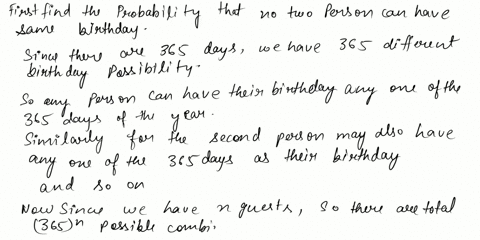 First find the Probability that no two Person can have
same birthday.
Since there are 365 days, we have 365 different
birthday possibility.
So any Person can have their birthday any one of the
365 days of the year.
Similarly for the second person may also have
any one of the 365 days as their birthday
and so on
Now Since we have n guests, so there are total
(365)ⁿ possible combi.